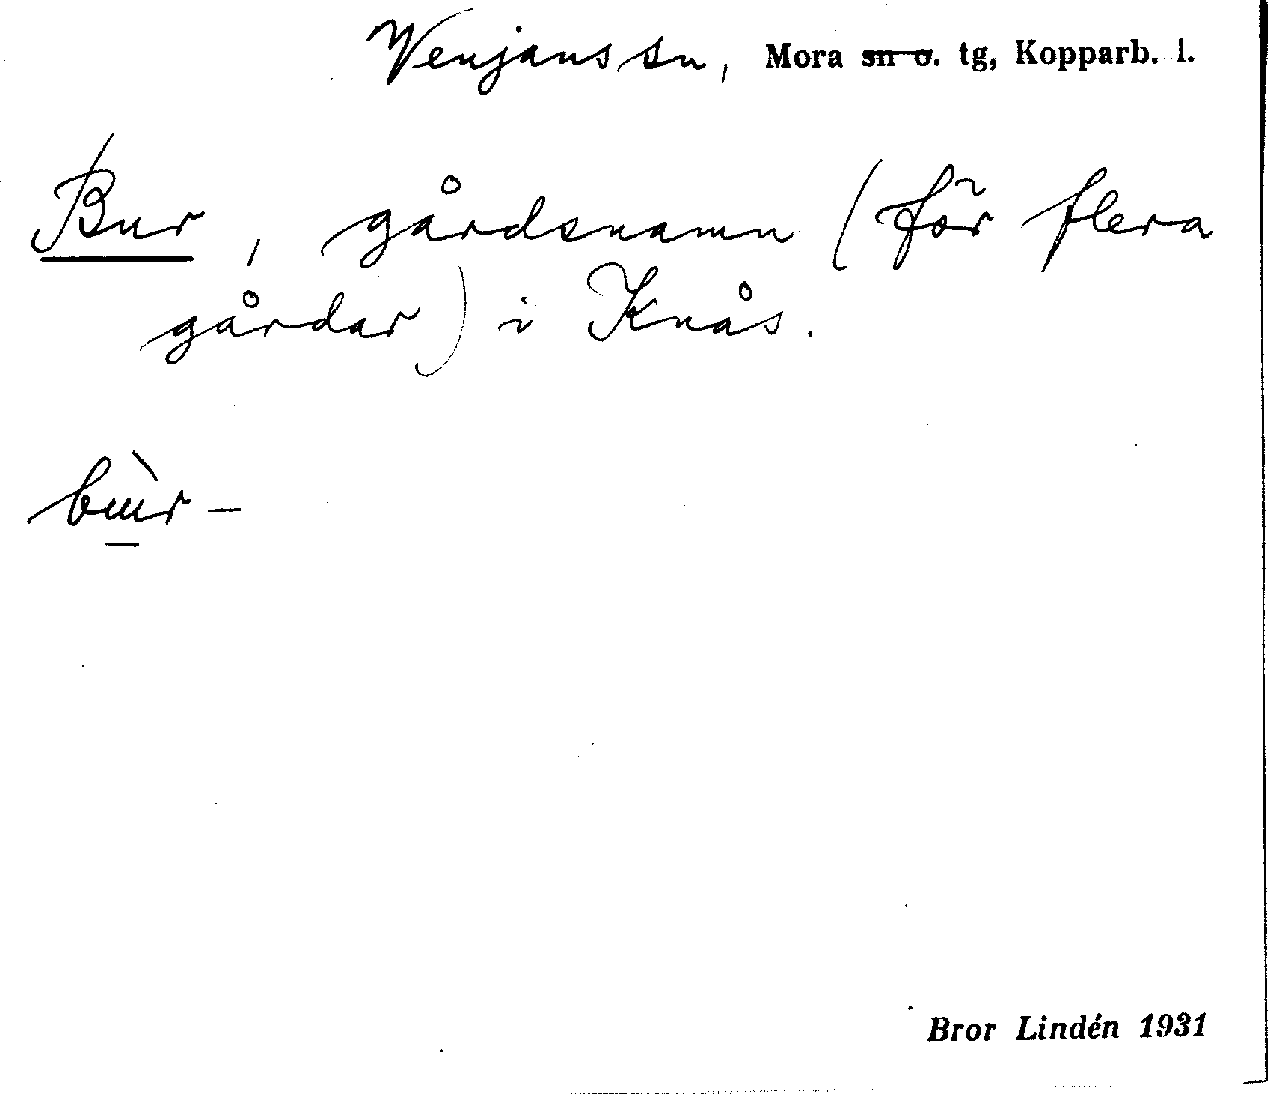 Venjans sn, Mora sn o. tg, Kopparb. l.
Bur, gårdsnamn (för flera
gårdar) i Knås.
bùr-
Bror Lindén 1931